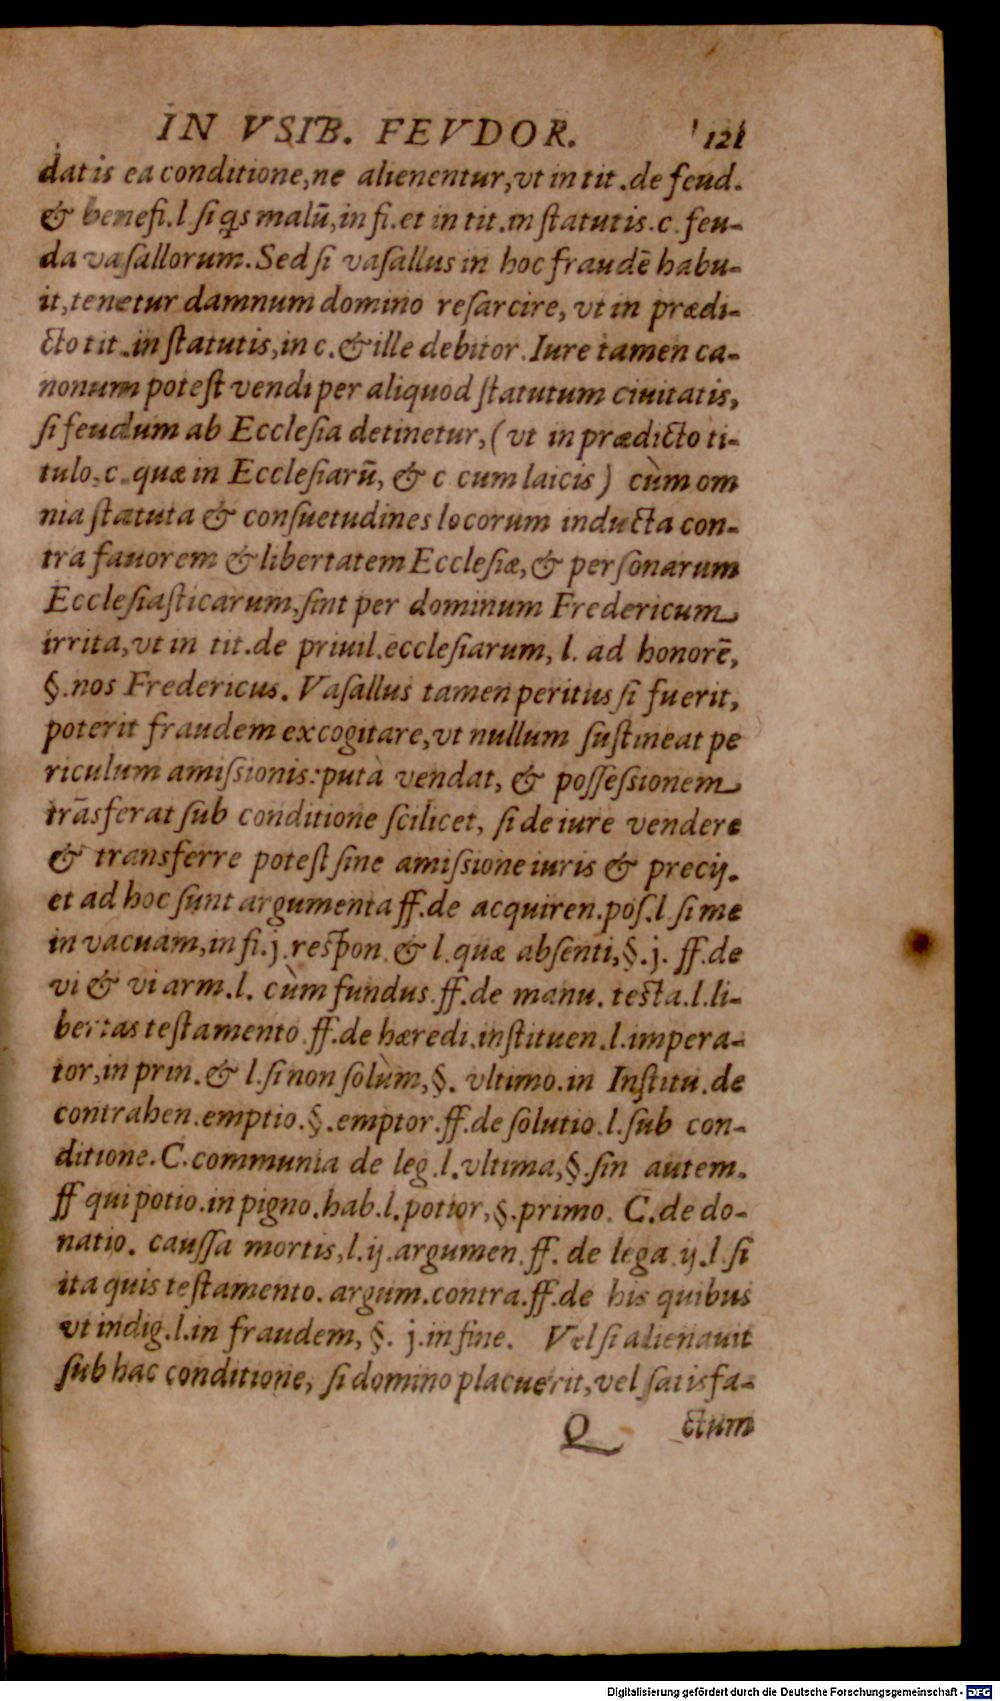 IN VSIB. FEVDOR. 121
datis ea conditione, ne alienentur, vt in tit. de feud.
& benefi. l. si qs malū, in fi. et in tit. in statutis. c. feu-
da vasallorum. Sed si vasallus in hoc fraudē habu-
it, tenetur damnum domino resarcire, vt in prædi-
cto tit. in statutis, in c. & ille debitor. Iure tamen ca-
nonum potest vendi per aliquod statutum ciuitatis,
si feudum ab Ecclesia detinetur, (vt in prædicto ti-
tulo. c. quæ in Ecclesiarū, & c cum laicis) cùm om
nia statuta & consuetudines locorum inducta con-
tra fauorem & libertatem Ecclesiæ, & personarum
Ecclesiasticarum, sint per dominum Fredericum
irrita, vt in tit. de priuil. ecclesiarum, l. ad honorē,
§. nos Fredericus. Vasallus tamen peritus si fuerit,
poterit fraudem excogitare, vt nullum sustineat pe
riculum amissionis: putà vendat, & possessionem
trāsferat sub conditione scilicet, si de iure vendere
& transferre potest sine amissione iuris & precij.
et ad hoc sunt argumenta ff. de acquiren. pos. l. si me
in vacuam, in fi. j. respon. & l. quæ absenti, §. j. ff. de
vi & vi arm. l. cùm fundus. ff. de manu. testa. l. li-
bertas testamento. ff. de hæredi. instituen. l. impera-
tor, in prin. & l. si non solùm, §. vltimo. in Institu. de
contrahen. emptio. §. emptor. ff. de solutio. l. sub con-
ditione. C. communia de leg. l. vltima, §. sin autem.
ff qui potio. in pigno. hab. l. potior, §. primo. C. de do-
natio. caussa mortis, l. ij. argumen. ff. de lega. ij. l. si
ita quis testamento. argum. contra. ff. de his quibus
vt indig. l. in fraudem, §. j. in fine. Vel si alienauit
sub hac conditione, si domino placuerit, vel satisfa-
Q ctum
Digitalisierung gefördert durch die Deutsche Forschungsgemeinschaft - DFG